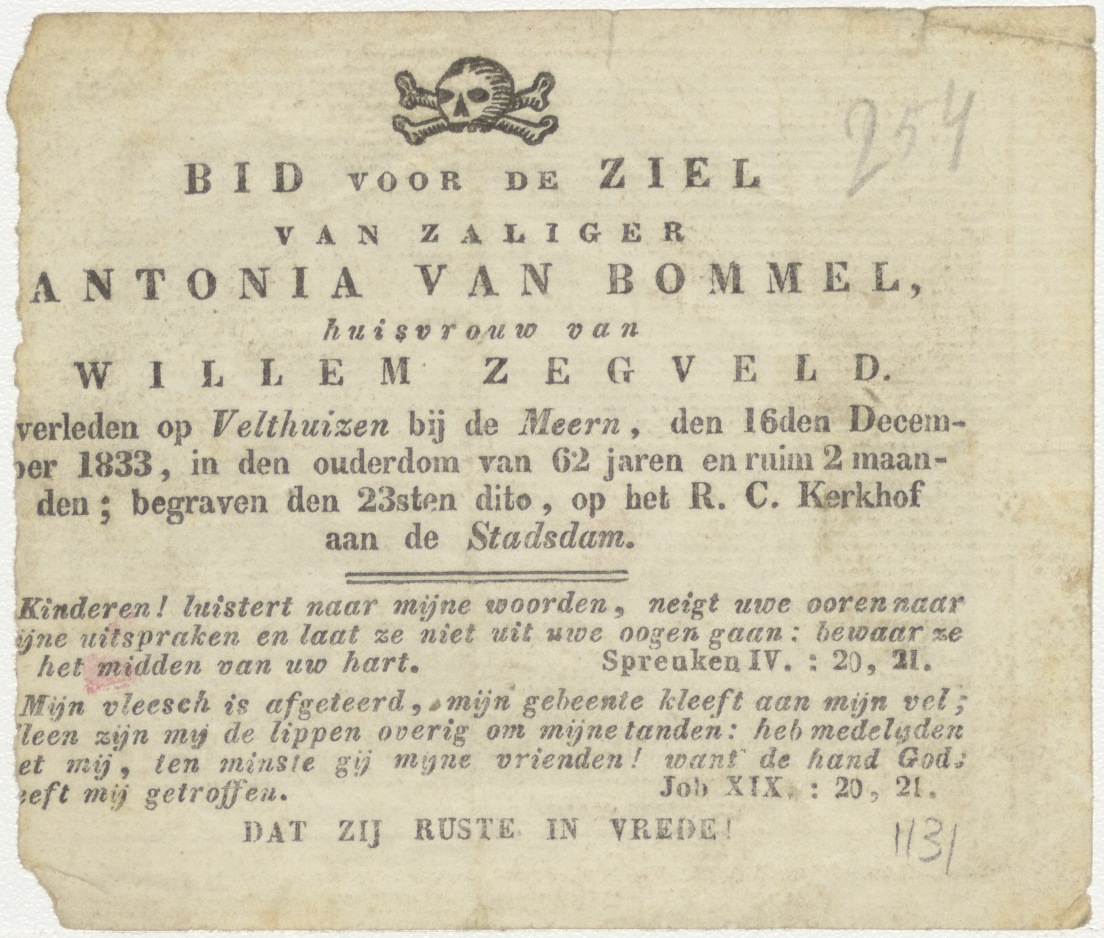 254
BID VOOR DE ZIEL
VAN ZALIGER
ANTONIA VAN BOMMEL,
huisvrouw van
WILLEM ZEGVELD.
verleden op Velthuizen bij de Meern, den 16den Decem-
ber 1833, in den ouderdom van 62 jaren en ruim 2 maan-
den; begraven den 23sten dito, op het R. C. Kerkhof
aan de Stadsdam.
Kinderen! luistert naar mijne woorden, neigt uwe ooren naar
ijne uitspraken en laat ze niet uit uwe oogen gaan: bewaar ze
het midden van uw hart. Spreuken IV. : 20, 21.
Mijn vleesch is afgeteerd, mijn gebeente kleeft aan mijn vel;
leen zijn mij de lippen overig om mijne tanden: heb medelijden
et mij, ten minste gij mijne vrienden! want de hand Gods
eeft mij getroffen. Job XIX. : 20, 21.
DAT ZIJ RUSTE IN VREDE!
1131